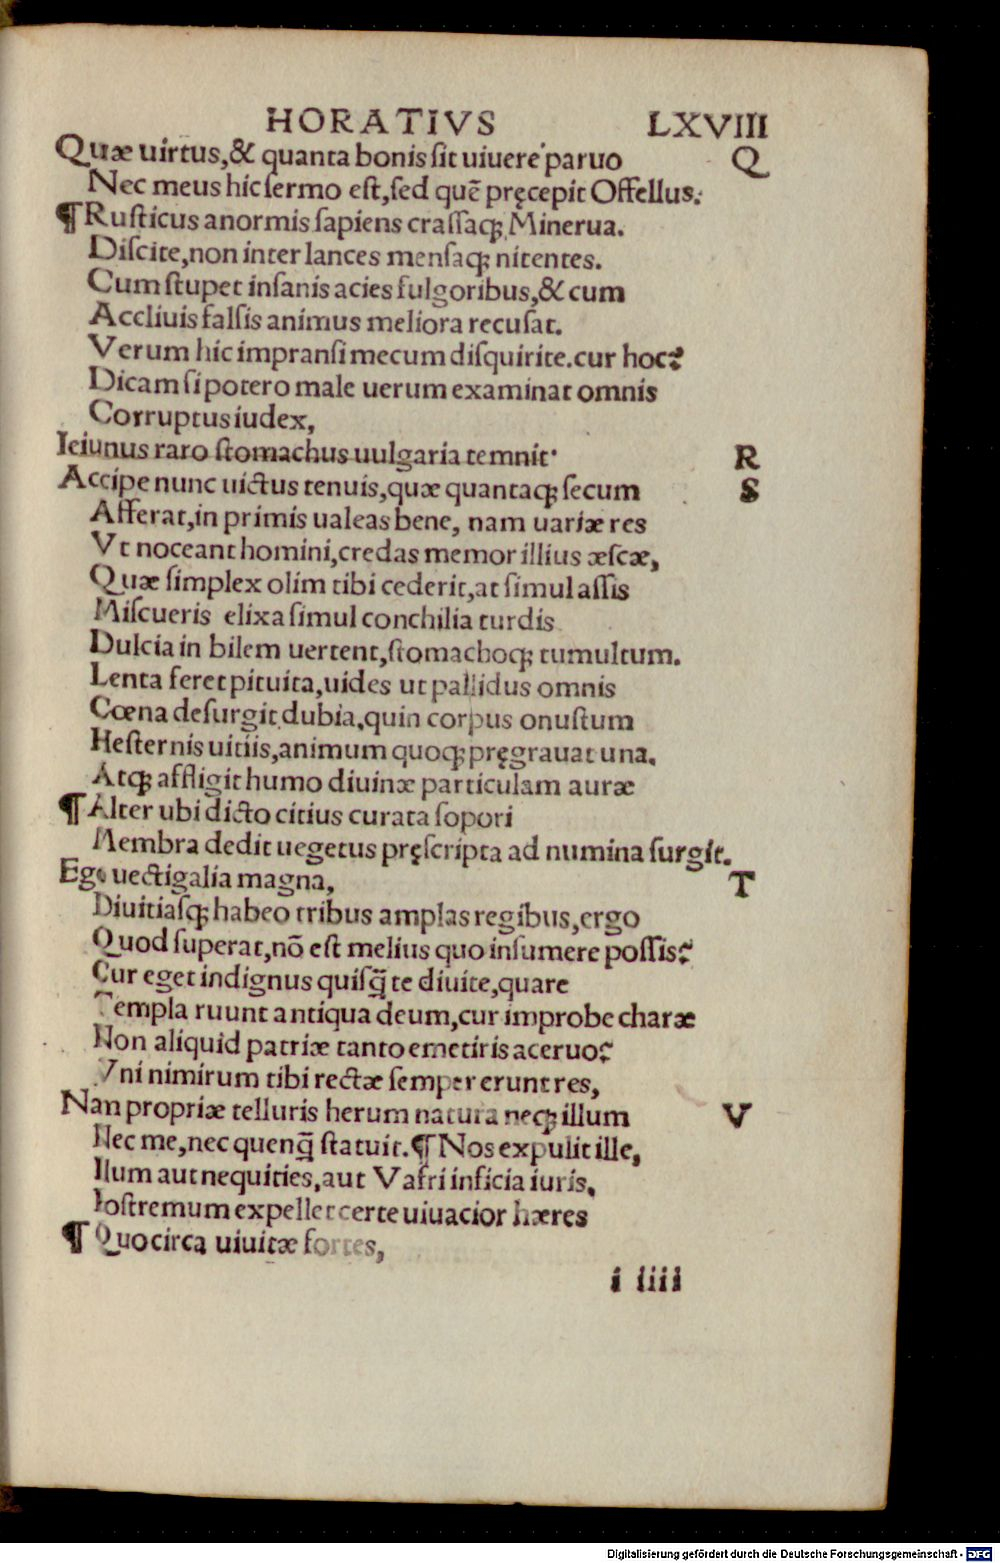 HORATIVS LXVIII
Quæ uirtus,& quanta bonis sit uiuere paruo Q
Nec meus hic sermo est,sed quē pręcepit Offellus.
¶ Rusticus anormis sapiens crassaq; Minerua.
Discite,non inter lances mensaq; nitentes.
Cum stupet insanis acies fulgoribus,& cum
Accliuis falsis animus meliora recusat.
Verum hic impransi mecum disquirite.cur hoc?
Dicam si potero male uerum examinat omnis
Corruptus iudex,
Ieiunus raro stomachus uulgaria temnit. R
Accipe nunc uictus tenuis,quæ quantaq; secum S
Afferat,in primis ualeas bene, nam uariæ res
Vt noceant homini,credas memor illius æscæ,
Quæ simplex olim tibi cederit,at simul assis
Miscueris elixa simul conchilia turdis
Dulcia in bilem uertent,stomachoq; tumultum.
Lenta feret pituita,uides ut pallidus omnis
Cœna desurgit dubia,quin corpus onustum
Hesternis uitiis,animum quoq; pręgrauat una.
Atq; affligit humo diuinæ particulam auræ
¶ Alter ubi dicto citius curata sopori
Membra dedit uegetus pręscripta ad numina surgit.
Ego uectigalia magna, T
Diuitiasq; habeo tribus amplas regibus,ergo
Quod superat,nō est melius quo insumere possis?
Cur eget indignus quisq̄ te diuite,quare
Templa ruunt antiqua deum,cur improbe charæ
Non aliquid patriæ tanto emetiris aceruo?
Vni nimirum tibi rectæ semper erunt res,
Nan propriæ telluris herum natura neq; illum V
Nec me,nec quenq̄ statuit.¶ Nos expulit ille,
Ilum aut nequities,aut Vafri inficia iuris,
Postremum expellet certe uiuacior hæres
¶ Quocirca uiuitæ fortes,
i iiii
Digitalisierung gefördert durch die Deutsche Forschungsgemeinschaft - DFG